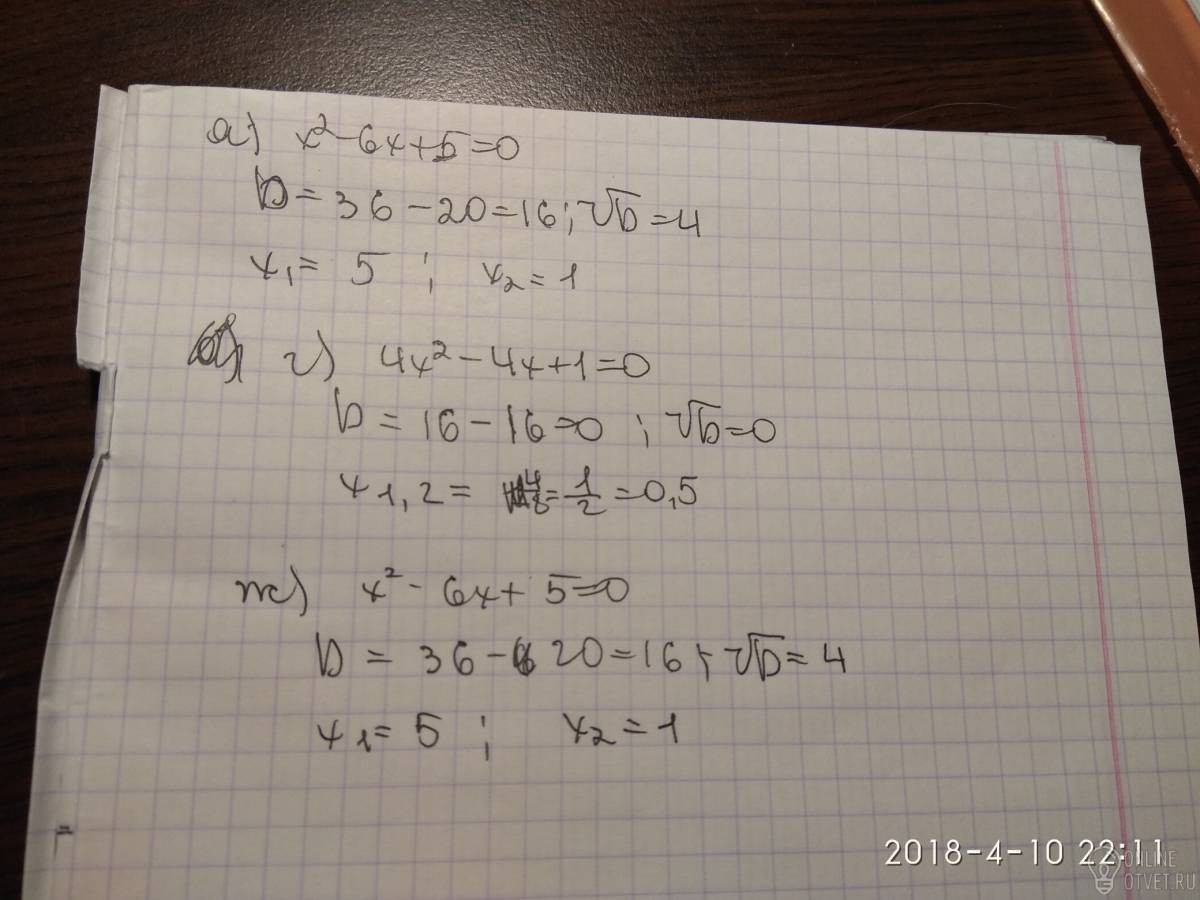 а) x²-6x+5=0
D=36-20=16; √D=4
x₁=5; x₂=1
г) 4x²-4x+1=0
D=16-16=0; √D=0
x₁,₂=4/8=1/2=0,5
ж) x²-6x+5=0
D=36-20=16; √D=4
x₁=5; x₂=1
=
2018-4-10 22:11
ONLINE
OTVET.RU